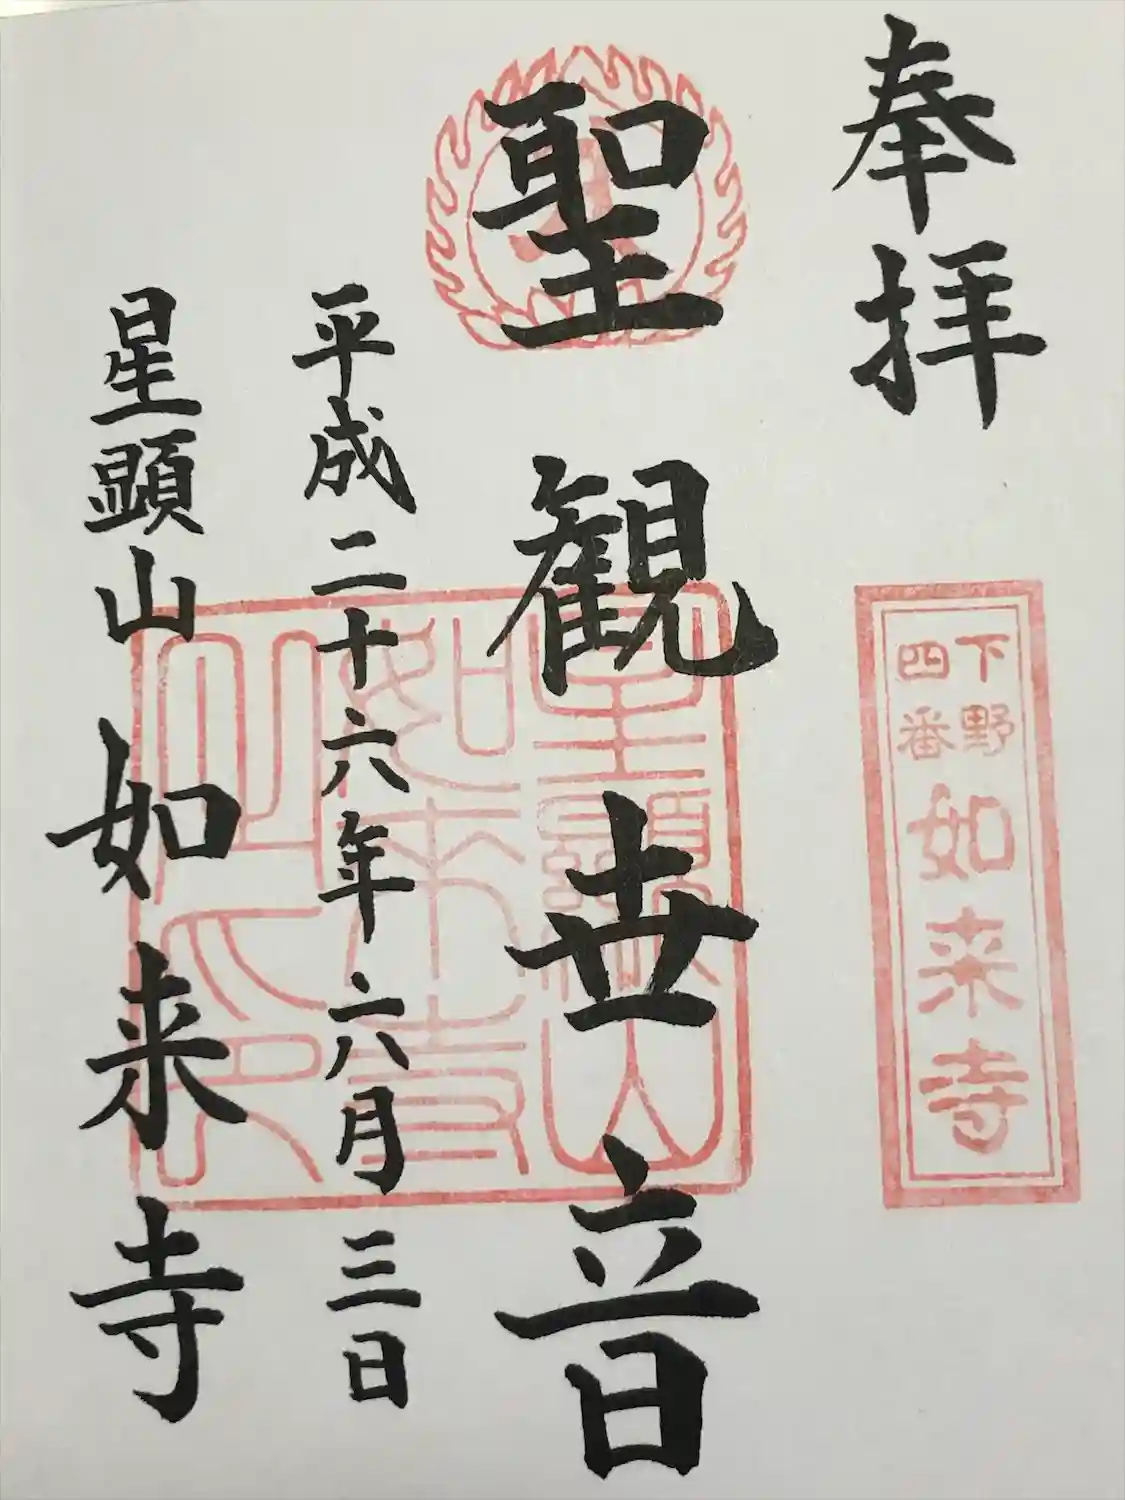 奉拝
下野
四番
如来寺
聖観世音
平成二十六年六月三日
星顕山 如来寺